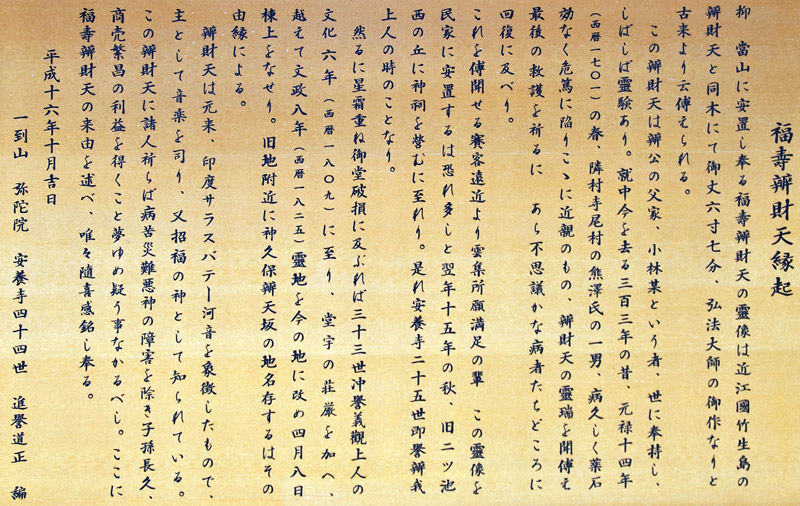 福壽辨財天縁起
抑 當山に安置し奉る福壽辨財天の靈像は近江國竹生島の
辨財天と同木にて御丈六寸七分、弘法大師の御作なりと
古来より云傳えられる。
この辨財天は辨公の父家、小林某という者、世に奉持し、
しばしば靈験あり。就中今を去る三百三年の昔、元禄十四年
（西暦一七〇一）の春、隣村寺尾村の熊澤氏の一男、病久しく薬石
効なく危篤に陥りこゝに近親のもの、辨財天の靈瑞を聞傳え
最後の救護を祈るに あら不思議かな病者たちどころに
回復に及べり。
これを傳聞せる賽客遠近より雲集所願満足の輩 この靈像を
民家に安置するは恐れ多しと翌年十五年の秋、旧二ツ池
西の丘に神祠を營むに至れり。是れ安養寺二十五世即譽辨我
上人の時のことなり。
然るに星霜重ね御堂破損に及ぶれば三十三世冲譽義觀上人の
文化六年（西暦一八〇九）に至り、堂宇の荘厳を加へ、
越えて文政八年（西暦一八二五）靈地を今の地に改め四月八日
棟上をなせり。旧地附近に神久保辨天坂の地名存するはその
由縁による。
辨財天は元来、印度サラスバテー河音を象徴したもので、
主として音楽を司り、又招福の神として知られている。
この辨財天に諸人祈らば病苦災難悪神の障害を除き子孫長久、
商売繁昌の利益を得くこと夢ゆめ疑う事なかるべし。ここに
福壽辨財天の来由を述べ、唯々隨喜感銘し奉る。
平成十六年十月吉日
一到山 弥陀院 安養寺四十四世 進譽道正 編